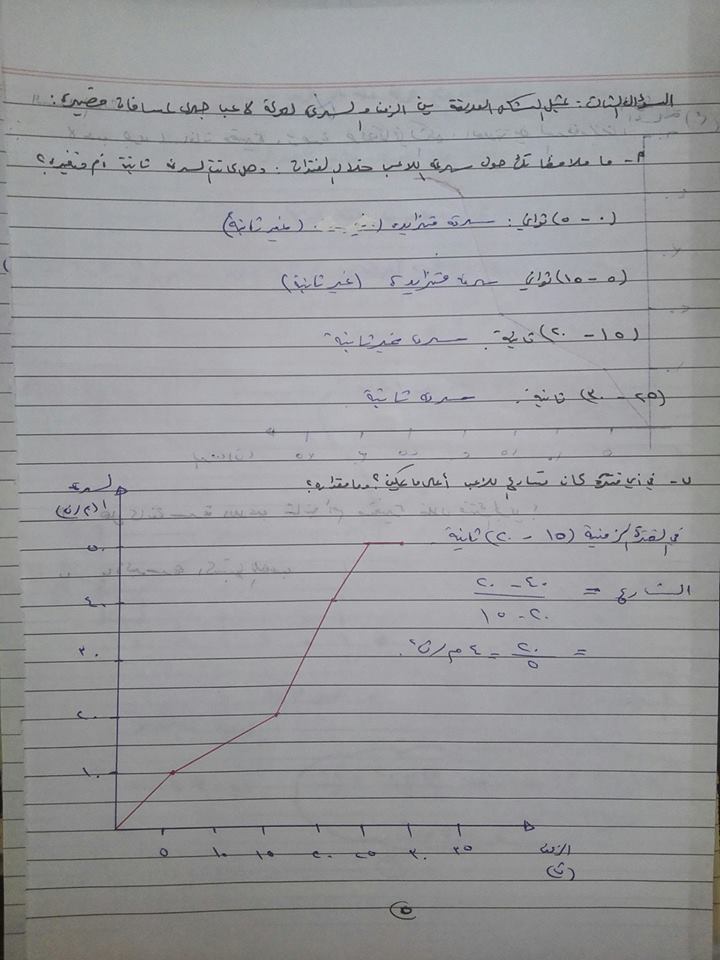 السؤال الثالث: يمثل الشكل العلاقة بين الزمن والسرعة لحركة لاعب جري لمسافات قصيرة:
أ- ما ملاحظاتك حول سرعة اللاعب خلال الفترات. وهل كانت السرعة ثابتة أم متغيرة؟
(٠ - ٥) ثواني: سرعة متزايدة (غير ثابتة)
(٥ - ١٥) ثواني سرعة متزايدة (غير ثابتة)
(١٥ - ٢٠) ثانية. سرعة غير ثابتة
(٢٥ - ٣٠) ثانية. سرعة ثابتة
ب- في أي فترة كان تسارع اللاعب أعلى ما يمكن؟ وما مقداره؟
في الفترة الزمنية (١٥ - ٢٠) ثانية
التسارع = ٤٠ - ٢٠ / ٢٠ - ١٥
= ٢٠ / ٥ = ٤ م/ث².
السرعة
(م/ث)
٥٠
٤٠
٣٠
٢٠
١٠
٥ ١٠ ١٥ ٢٠ ٢٥ ٣٠ ٣٥
الزمن
(ث)
٥